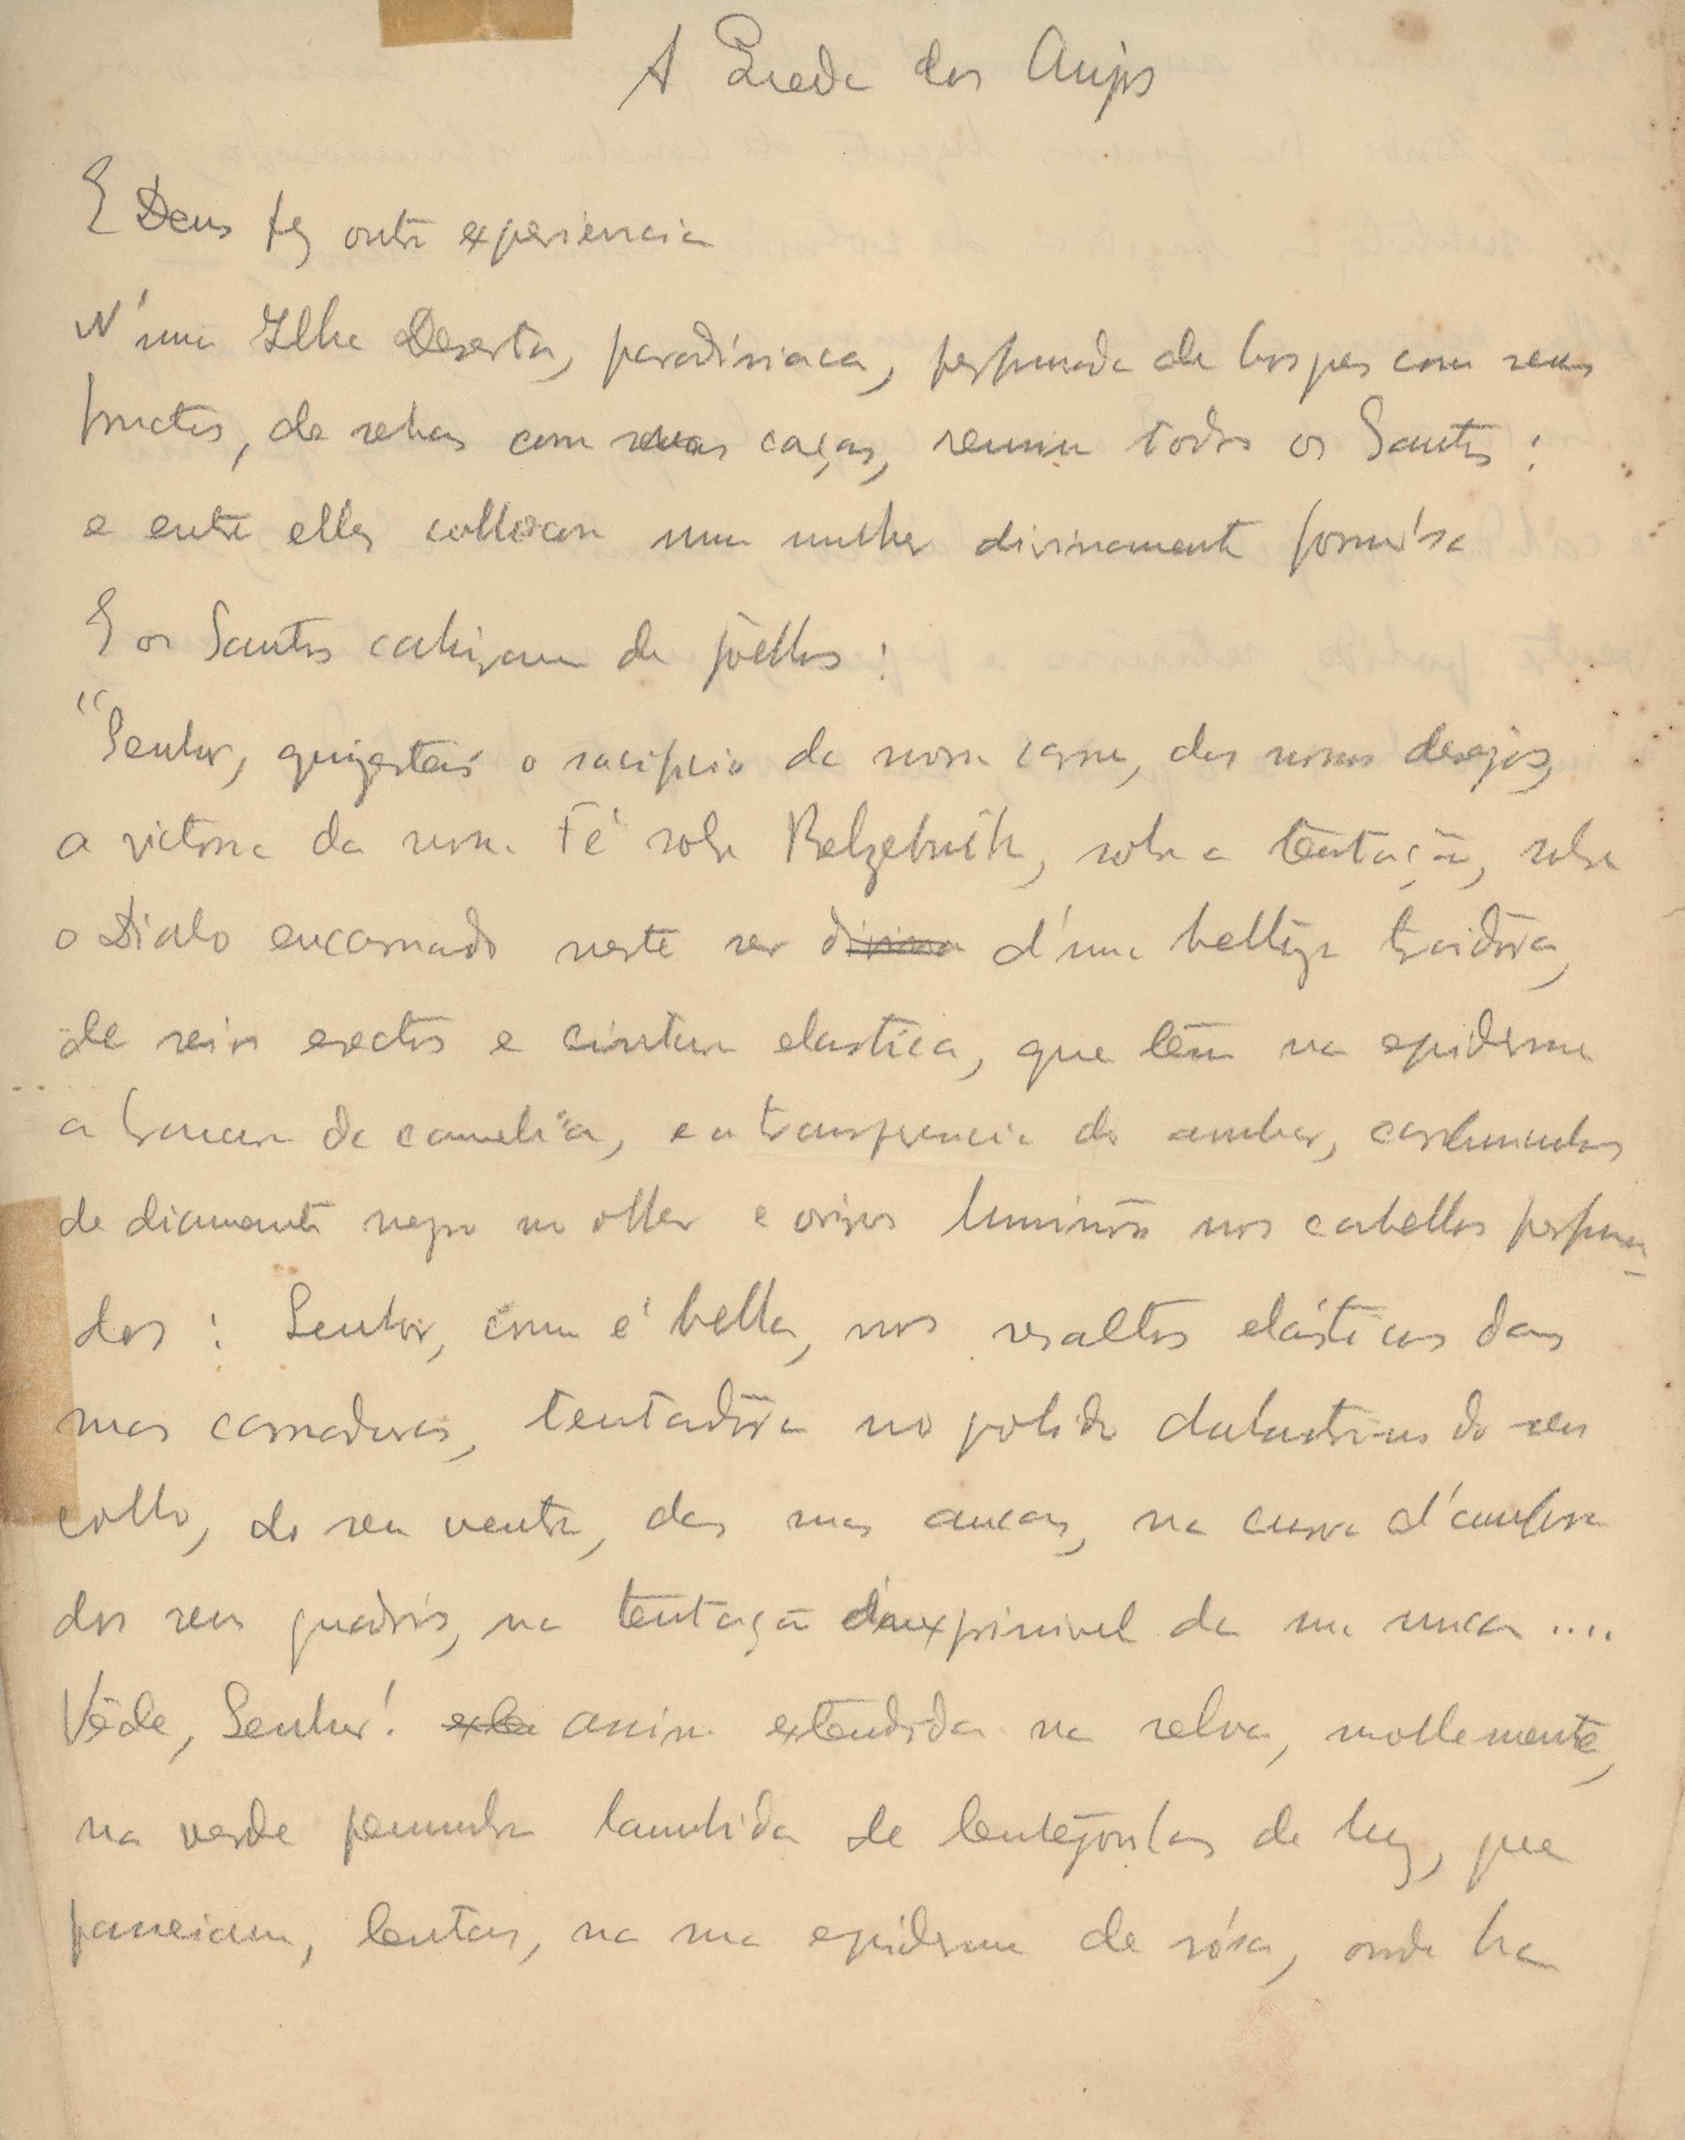 A Queda dos Anjos
E Deus fez outra experiencia
N'uma Ilha Deserta, paradisiaca, perfumada de bosques com seus
fructos, de selvas com suas caças, reuniu todos os Santos :
e entre elles collocou uma mulher divinamente formósa
E os Santos cahiram de joelhos :
"Senhor, quizesteis o sacrificio da nossa carne, dos nossos desejos,
a victoria da nossa Fé sobre Belzebuth, sobre a tentação, sobre
o Diabo encarnado neste ser divino d'uma belleza traidôra,
de seios erectos e cintura elastica, que têm na epiderme
a brancura da camelia, e a transparencia do ambar,
de diamante negro no olhar e luminôso nos cabellos perfuma-
dos : Senhor, como é bella, nos resaltos elásticos das
suas carnaduras, tentadôra no polido do seu
collo, do seu ventre, das suas ancas, na curva d'amphora
dos seus quadris, na tentação inexprimivel da sua nuca ....
Vêde, Senhor! assim extendida na relva, mollemente,
na verde penumbra lambida de lentejoulas de luz, que
passeiam, lentas, na sua epiderme de rósa, onde ha